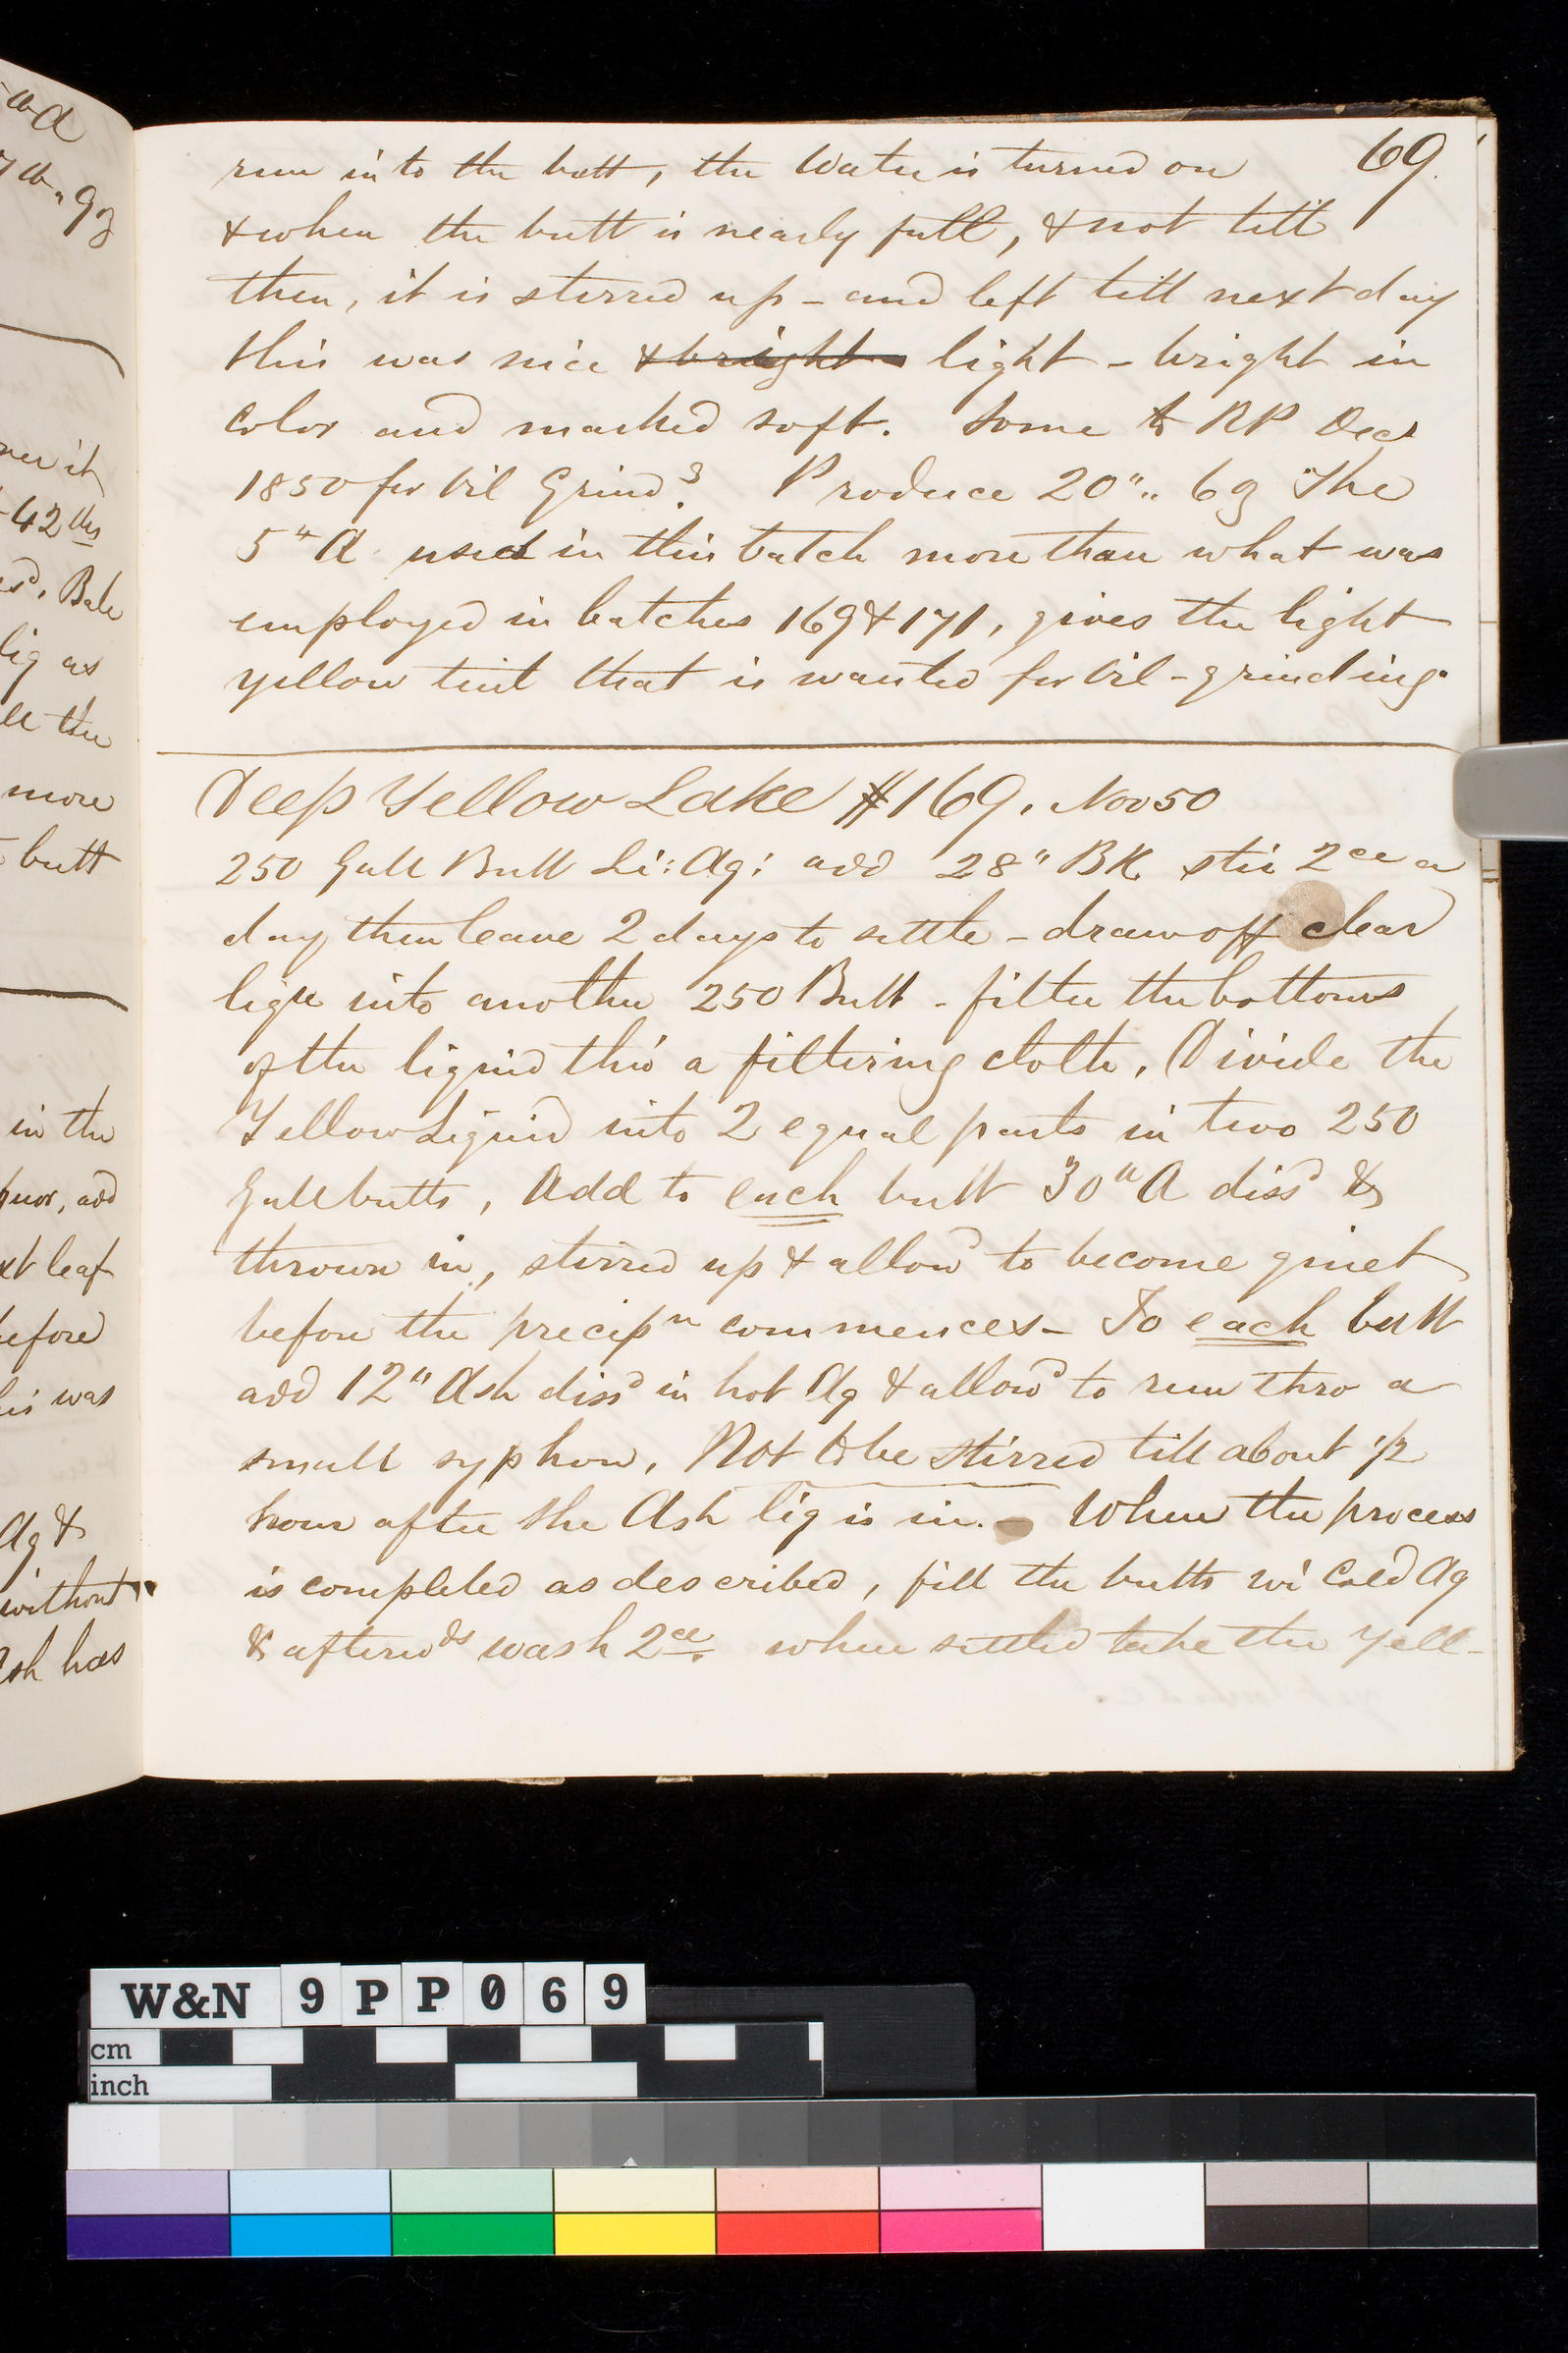 69.
run into the butt, the Water is turned on
& when the butt is nearly full, & not till
then, it is stirred up – and left till next day
this was nice & bright light – bright in
color and marked soft. Some to RP Decr
1850 for Oil Grindg. Produce 20".. 6 g The
5" A used in this batch more than what was
employed in batches 169 & 171, gives the light
yellow tint that is wanted for Oil-grinding.
Deep Yellow Lake #169. Nov 50
250 Gall Butt Li: Aq: add 28" BK stir 2ce a
day then leave 2 days to settle – draw off clear
liqr into another 250 Butt – filter the bottoms
of the liquid thro' a filtering cloth. Divide the
Yellow Liquid into 2 equal parts in two 250
Gall butts, Add to each butt 30" A dissd &
thrown in, stirred up & allowd to become quiet
before the precipn commences – To each butt
add 12" Ash dissd in hot Aq & allowd to run thro a
small syphon. Not to be stirred till about 1/2
hour after the Ash liq is in. – When the process
is completed as described, fill the butts wi Cold Aq
& afterwds wash 2ce. when settled take the Yell-
ner it
42 lbs
Bale
liq as
the
more
butt
in the
add
xt leaf
before
was
Aq &
without
Ash has
W&N 9PP069
cm
inch